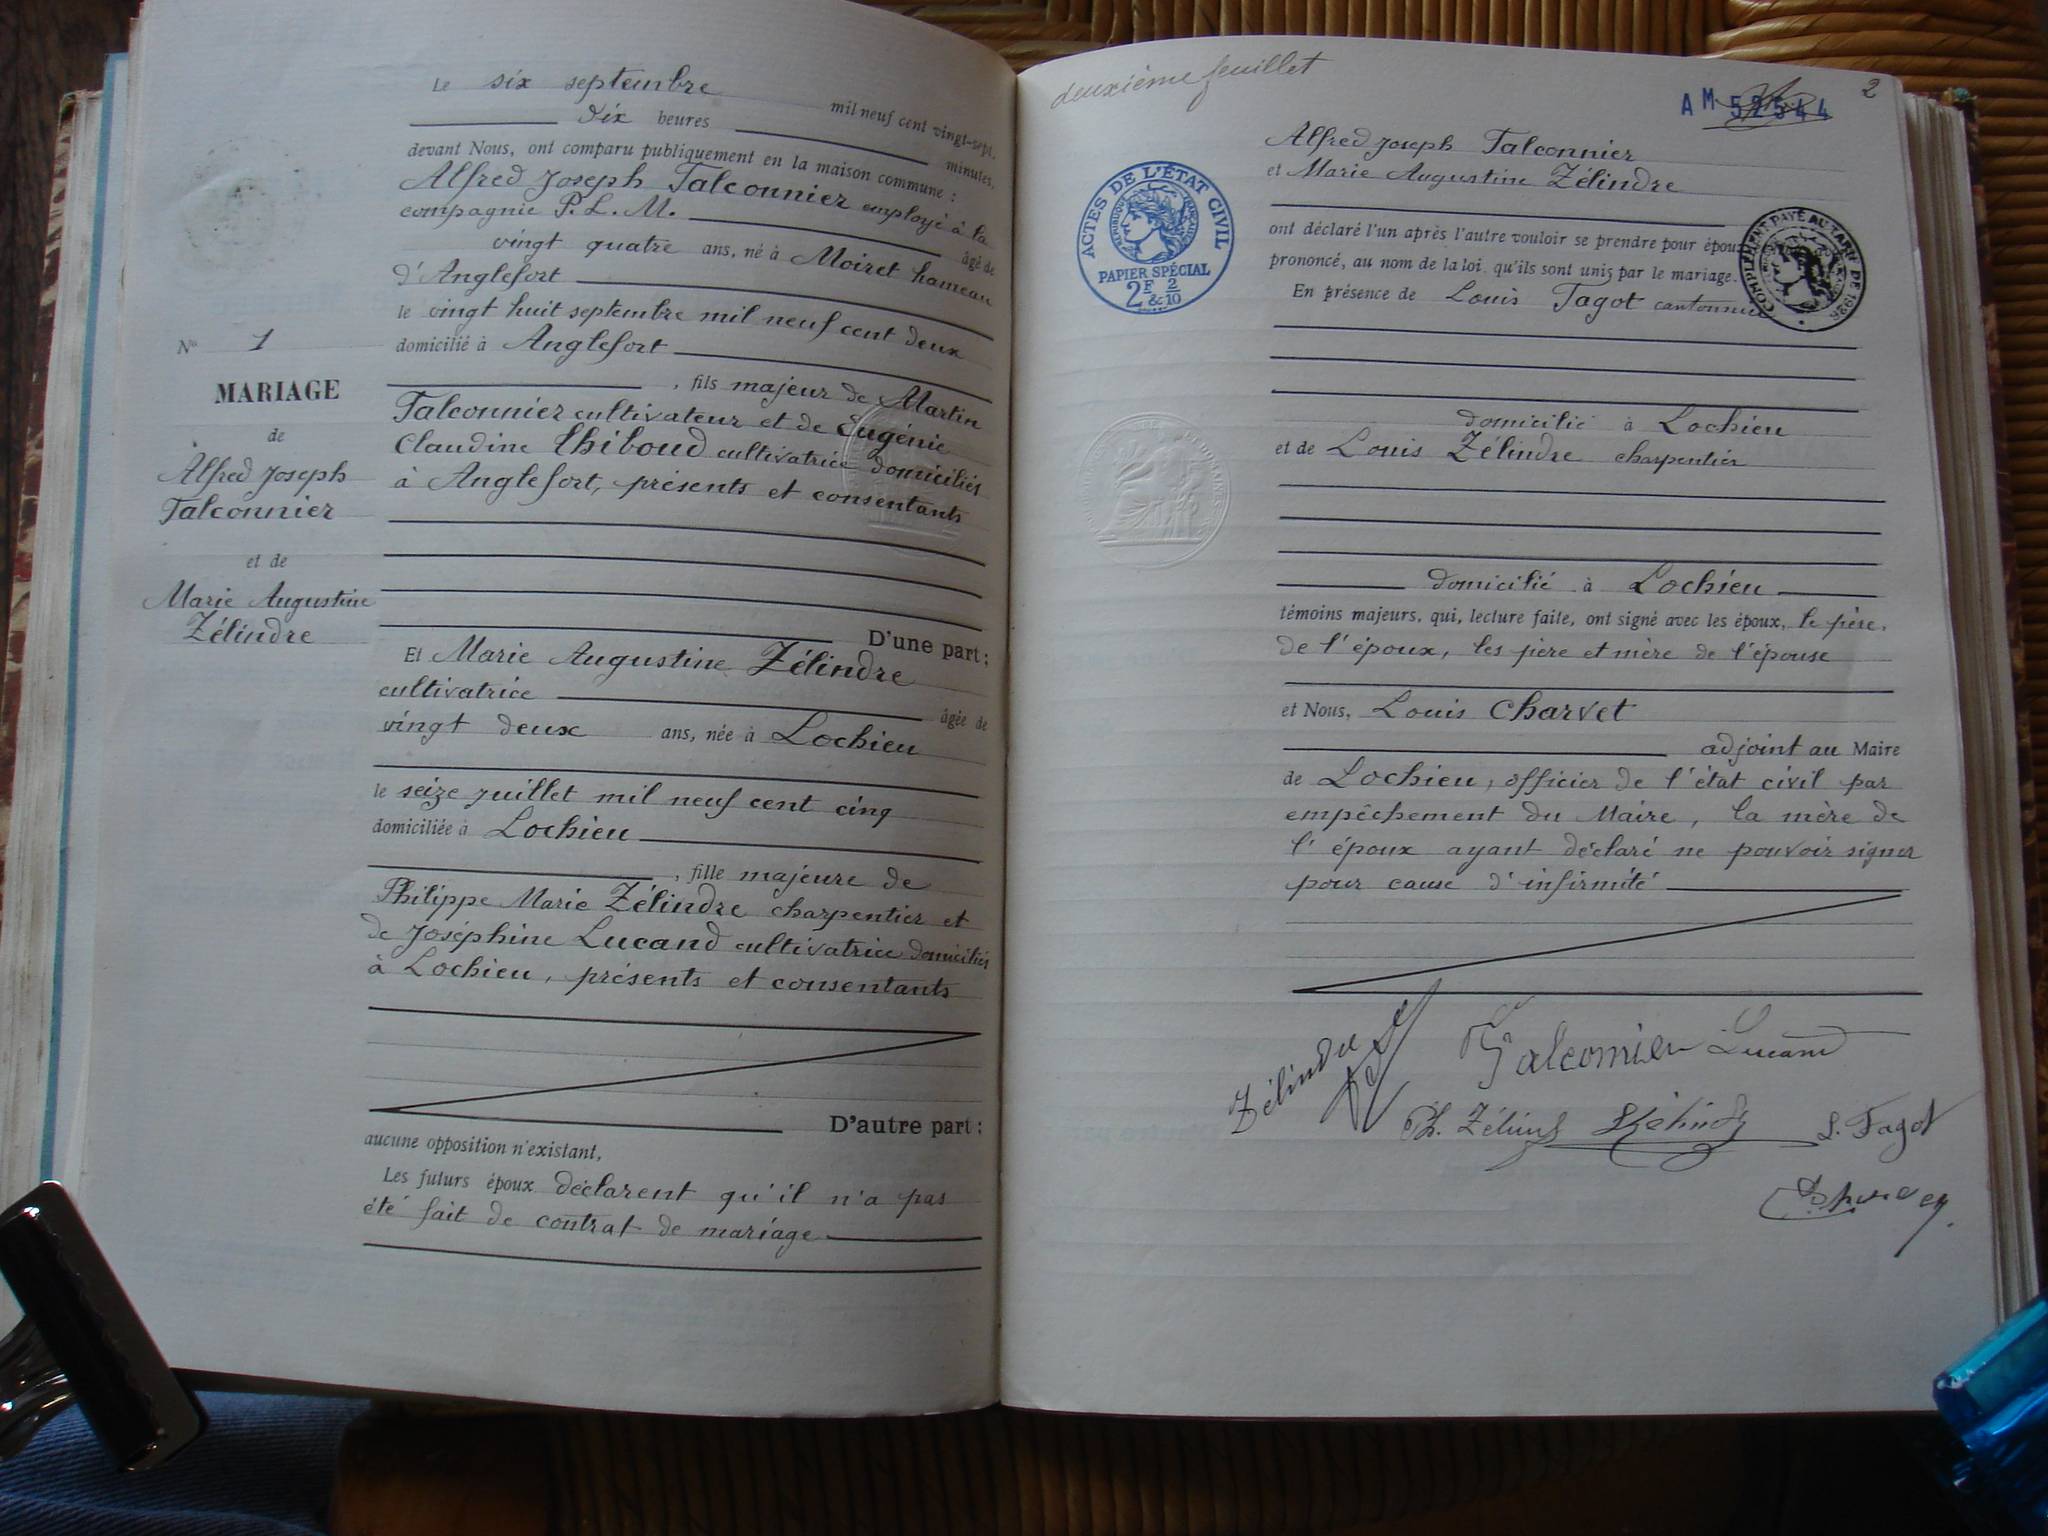 Le six septembre mil neuf cent vingt-sept,
dix heures minutes,
devant Nous, ont comparu publiquement en la maison commune :
Alfred Joseph Falconnier employé à la
compagnie P. L. M. âgé de
vingt quatre ans, né à Moiret hameau
d'Anglefort
le vingt huit septembre mil neuf cent deux
domicilié à Anglefort
, fils majeur de Martin
Falconnier cultivateur et de Eugénie
Claudine Thiboud cultivatrice domiciliés
à Anglefort, présents et consentants
D'une part ;
Et Marie Augustine Zélindre
cultivatrice âgée de
vingt deux ans, née à Lochieu
le seize juillet mil neuf cent cinq
domiciliée à Lochieu
, fille majeure de
Philippe Marie Zélindre charpentier et
de Joséphine Lucand cultivatrice domiciliés
à Lochieu, présents et consentants
D'autre part ;
aucune opposition n'existant,
Les futurs époux déclarent qu'il n'a pas
été fait de contrat de mariage
No 1
MARIAGE
de
Alfred Joseph
Falconnier
et de
Marie Augustine
Zélindre
deuxième feuillet
AM 52544
2
ACTES DE L'ÉTAT CIVIL
RÉPUBLIQUE FRANÇAISE
PAPIER SPÉCIAL
2F & 2/10
COMPLÉMENT PAYÉ AU TARIF DE 1926
Alfred Joseph Falconnier
et Marie Augustine Zélindre
ont déclaré l'un après l'autre vouloir se prendre pour époux
prononcé, au nom de la loi, qu'ils sont unis par le mariage.
En présence de Louis Fagot cantonnier
domicilié à Lochieu
et de Louis Zélindre charpentier
domicilié à Lochieu
témoins majeurs, qui, lecture faite, ont signé avec les époux, le père,
de l'époux, les père et mère de l'épouse
et Nous, Louis Charvet
adjoint au Maire
de Lochieu, officier de l'état civil par
empêchement du Maire, la mère de
l'époux ayant déclaré ne pouvoir signer
pour cause d'infirmité
Zélindre
Falconnier Lucand
Ph. Zélind
L. Fagot